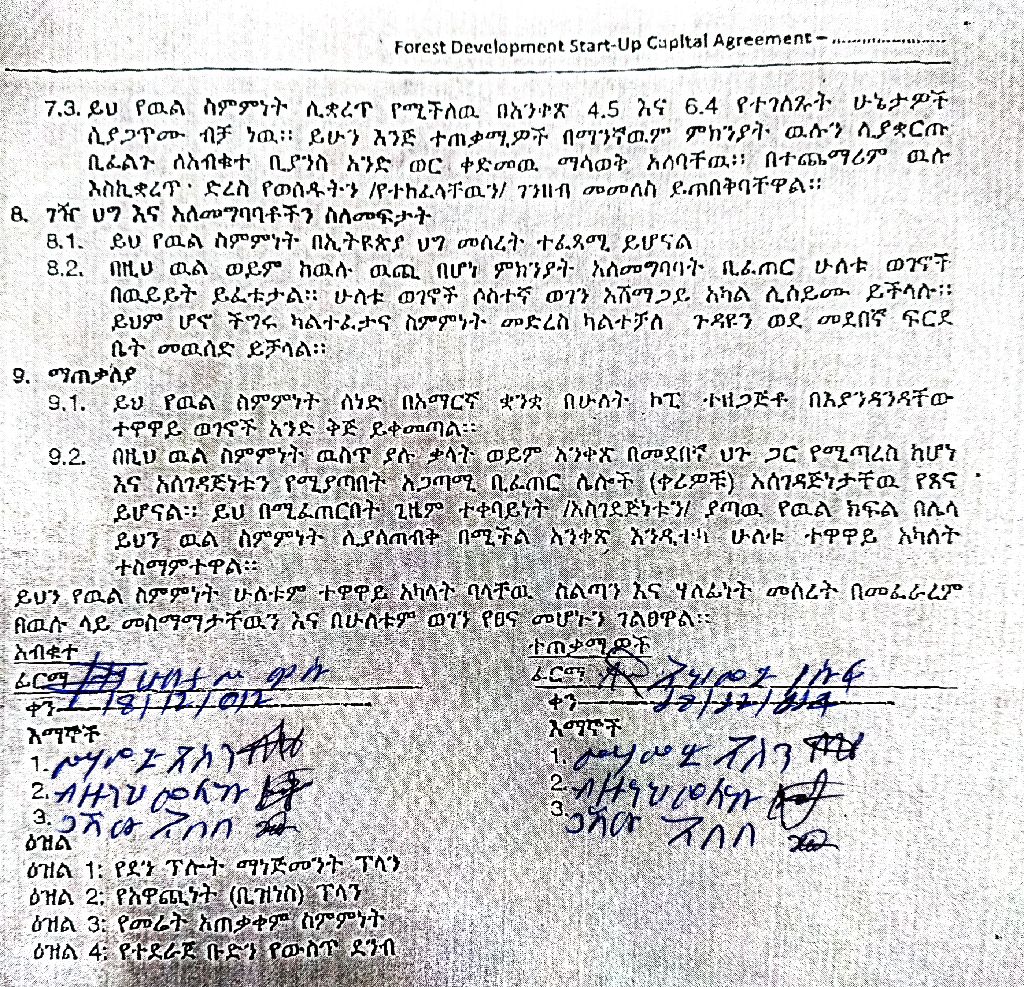 Forest Development Start-Up Capital Agreement – ........................
7.3. ይህ የዉል ስምምነት ሊቋረጥ የሚችለዉ በአንቀጽ 4.5 እና 6.4 የተገለጹት ሁኔታዎች
ሲያጋጥሙ ብቻ ነዉ፡፡ ይሁን እንጅ ተጠቃሚዎች በማንኛዉም ምክንያት ዉሉን ሊያቋርጡ
ቢፈልጉ ለአብቁተ ቢያንስ አንድ ወር ቀድመዉ ማሳወቅ አለባቸዉ፡፡ በተጨማሪም ዉሉ
እስኪቋረጥ ድረስ የወሰዱትን /የተከፈላቸዉን/ ገንዘብ መመለስ ይጠበቅባቸዋል፡፡
8. ገዥ ህግ እና አለመግባባቶችን ስለመፍታት
8.1. ይህ የዉል ስምምነት በኢትዩጵያ ህግ መሰረት ተፈጻሚ ይሆናል
8.2. በዚህ ዉል ወይም ከዉሉ ዉጪ በሆነ ምክንያት አለመግባባት ቢፈጠር ሁለቱ ወገኖች
በዉይይት ይፈቱታል፡፡ ሁለቱ ወገኖች ሶስተኛ ወገን አሸማጋይ አካል ሊሰይሙ ይችላሉ፡፡
ይህም ሆኖ ችግሩ ካልተፈታና ስምምነት መድረስ ካልተቻለ ጉዳዩን ወደ መደበኛ ፍርደ
ቤት መዉሰድ ይቻላል፡፡
9. ማጠቃለያ
9.1. ይህ የዉል ስምምነት ሰነድ በአማርኛ ቋንቋ በሁለት ኮፒ ተዘጋጅቶ በእያንዳንዳቸው
ተዋዋይ ወገኖች አንድ ቅጅ ይቀመጣል፡፡
9.2. በዚህ ዉል ስምምነት ዉስጥ ያሉ ቃላት ወይም አንቀጽ በመደበኛ ህጉ ጋር የሚጣረስ ከሆነ
እና አስገዳጅነቱን የሚያጣበት አጋጣሚ ቢፈጠር ሌሎች (ቀሪዎቹ) አስገዳጅነታቸዉ የጸና
ይሆናል፡፡ ይህ በሚፈጠርበት ጊዜም ተቀባይነት /አስገደጅነቱን/ ያጣዉ የዉል ክፍል በሌላ
ይህን ዉል ስምምነት ሊያስጠብቅ በሚችል አንቀጽ እንዲተካ ሁለቱ ተዋዋይ አካለት
ተስማምተዋል፡፡
ይህን የዉል ስምምነት ሁለቱም ተዋዋይ አካላት ባላቸዉ ስልጣን እና ሃለፊነት መሰረት በመፈራረም
በዉሉ ላይ መስማማታቸዉን እና በሁለቱም ወገን የፀና መሆኑን ገልፀዋል፡፡
አብቁተ ተጠቃሚዎች
ፊርማ ፊርማ
ቀን 18/12/012 ቀን
እማኞች እማኞች
1. 1.
2. 2.
3. 3.
ዕዝል
ዕዝል 1: የደን ፕሎት ማነጅመንት ፕላን
ዕዝል 2: የአዋጪነት (ቢዝነስ) ፕላን
ዕዝል 3: የመሬት አጠቃቀም ስምምነት
ዕዝል 4: የተደራጀ ቡድን የውስጥ ደንብ